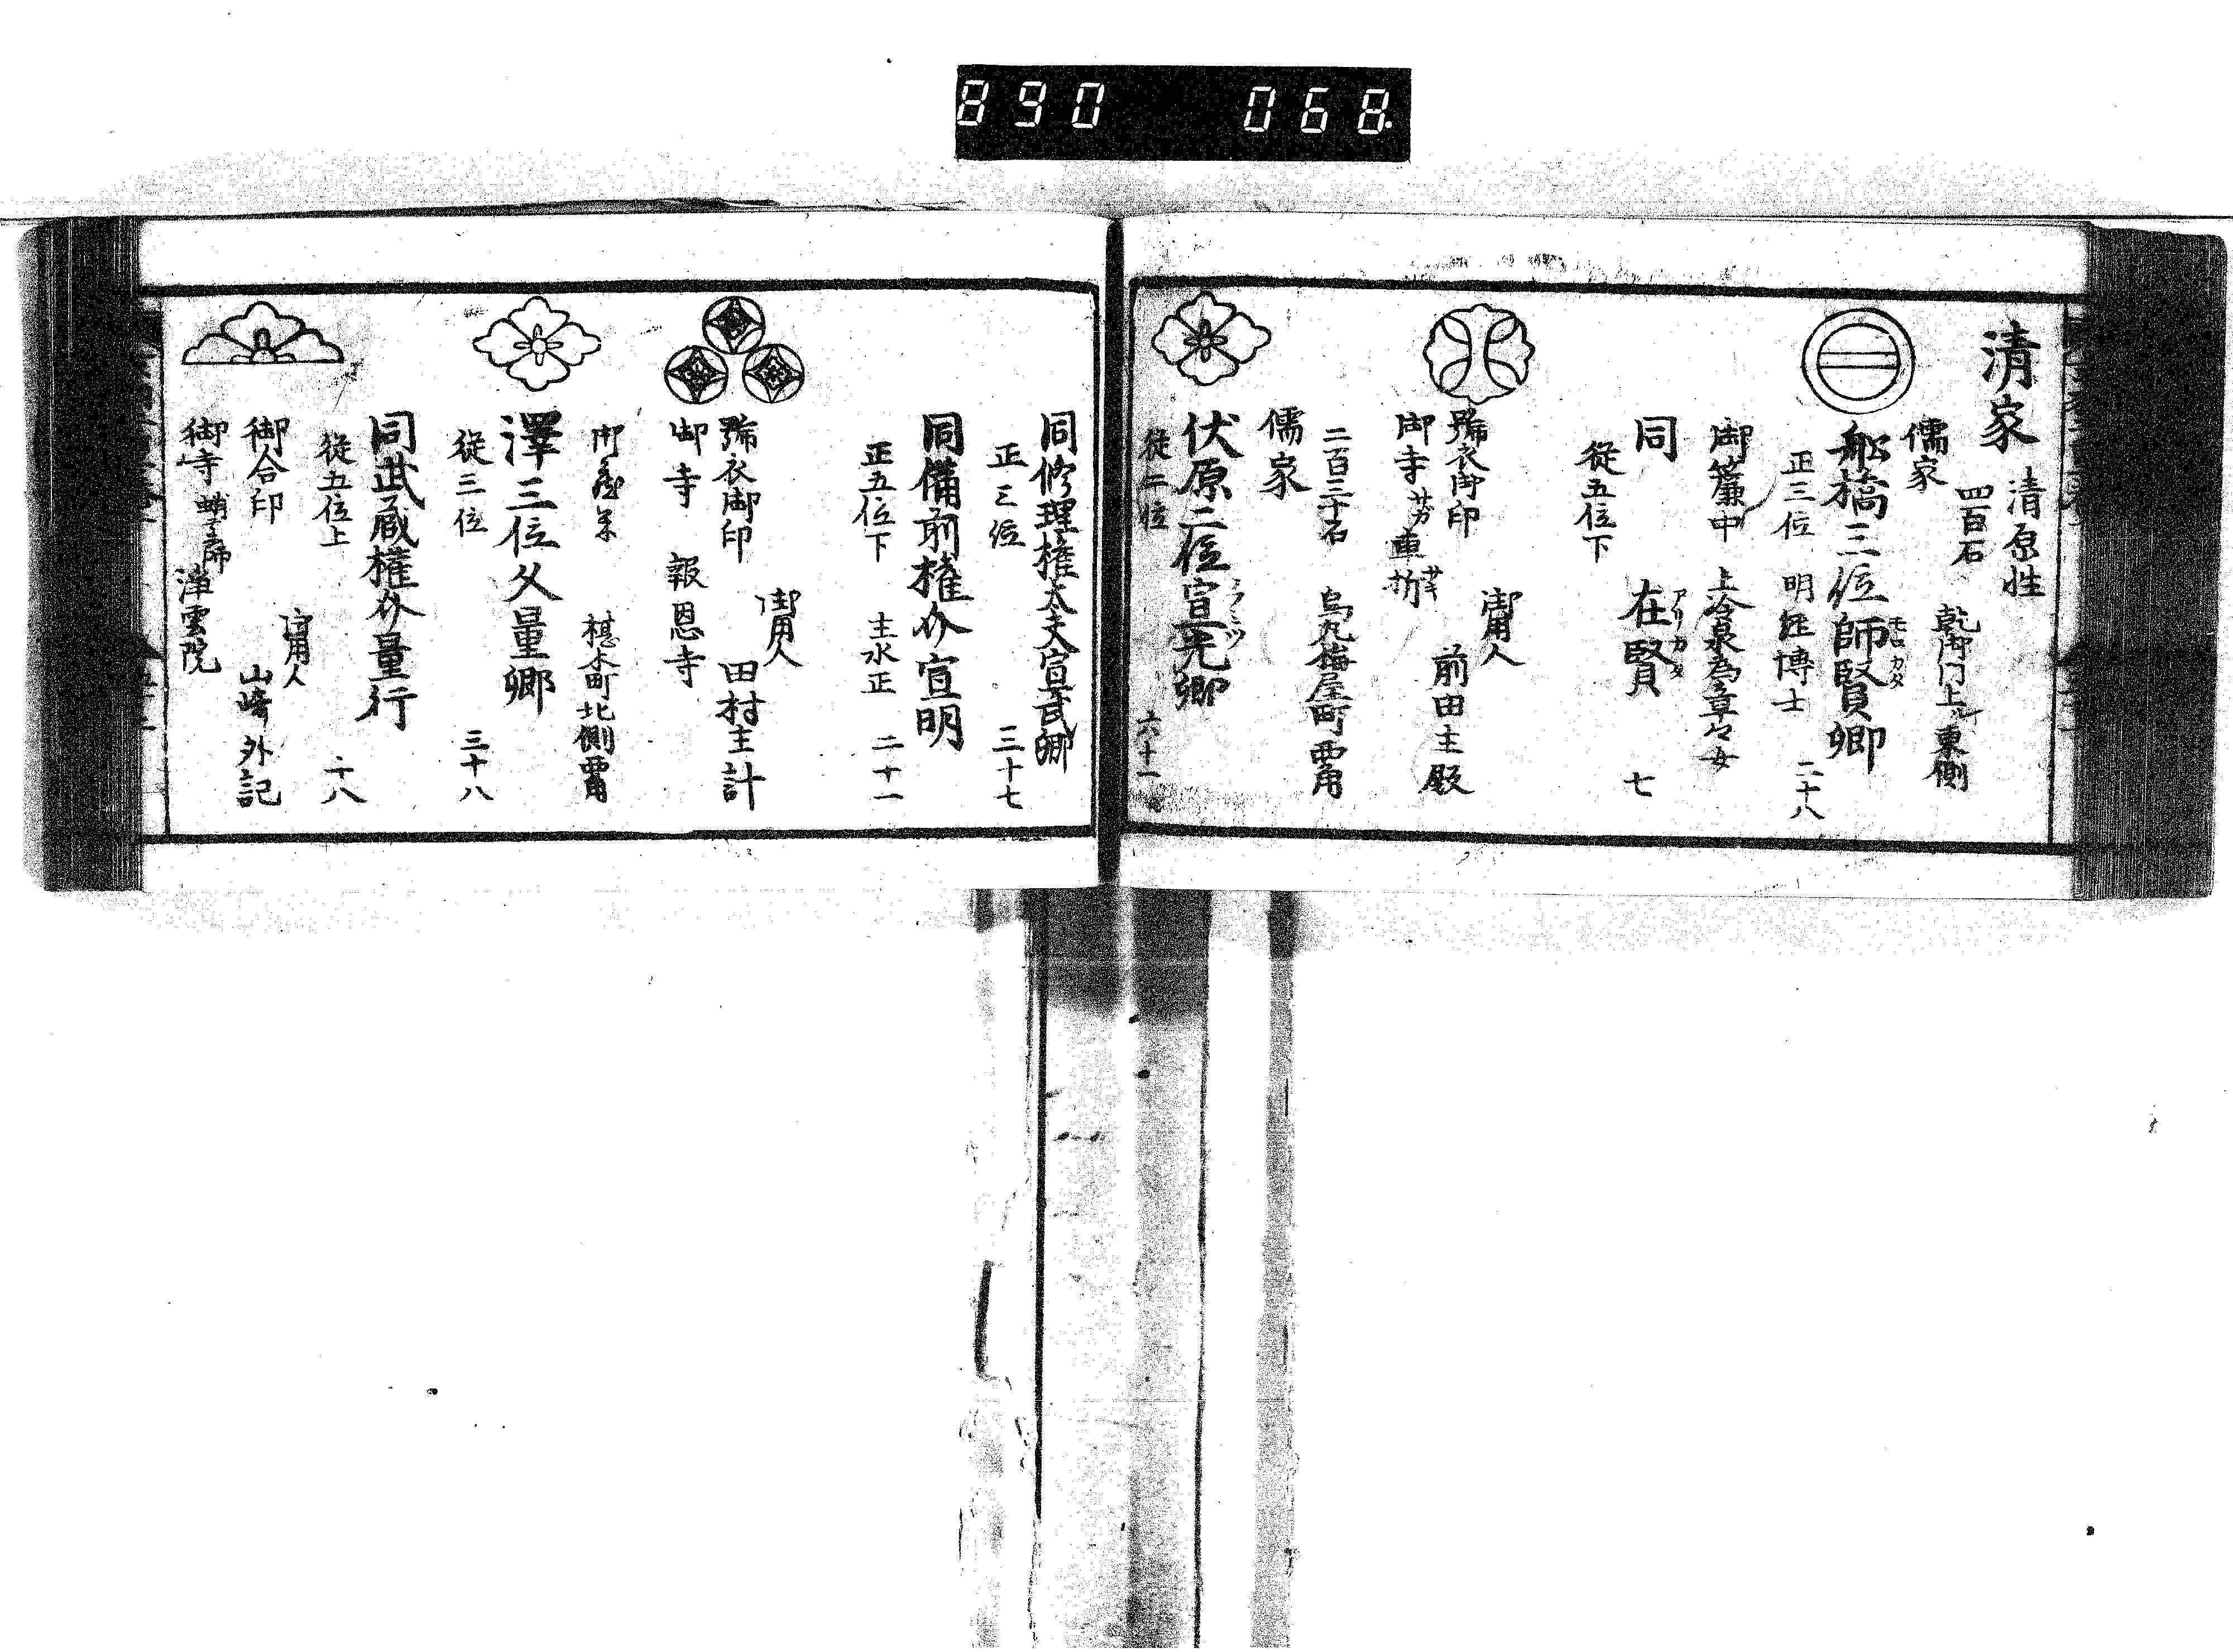 890 068
清家 清原性
四百石
儒家 乾御门上ル東側
舩橋三位師賢卿
モロカタ
正三位 明経博士 二十八
御簾中 上冷泉為章々女
同 在賢 七
アリカタ
従五位下
御用人
號衣御印 前田主殿
御寺
二百三十石 烏丸梅屋町西角
儒家
伏原二位宣光卿
従二位 六十一
同修理権大夫宣武卿
正三位 三十七
同備前権介宣明
正五位下 主水正 二十一
御用人
號衣御印 田村主計
御寺 報恩寺
椹木町北側西角
澤三位久量卿
従三位 三十八
同武蔵権介量行
従五位上 十八
御用人
御合印 山崎外記
御寺 浄雲院